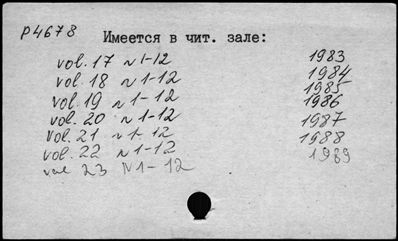 P4678
Имеется в чит. зале:
vol. 17 N 1-12 1983
vol. 18 N 1-12 1984
vol. 19 N 1-12 1985
vol. 20 N 1-12 1986
vol. 21 N 1-12 1987
vol. 22 N 1-12 1988
vol 23 N 1-12 1989